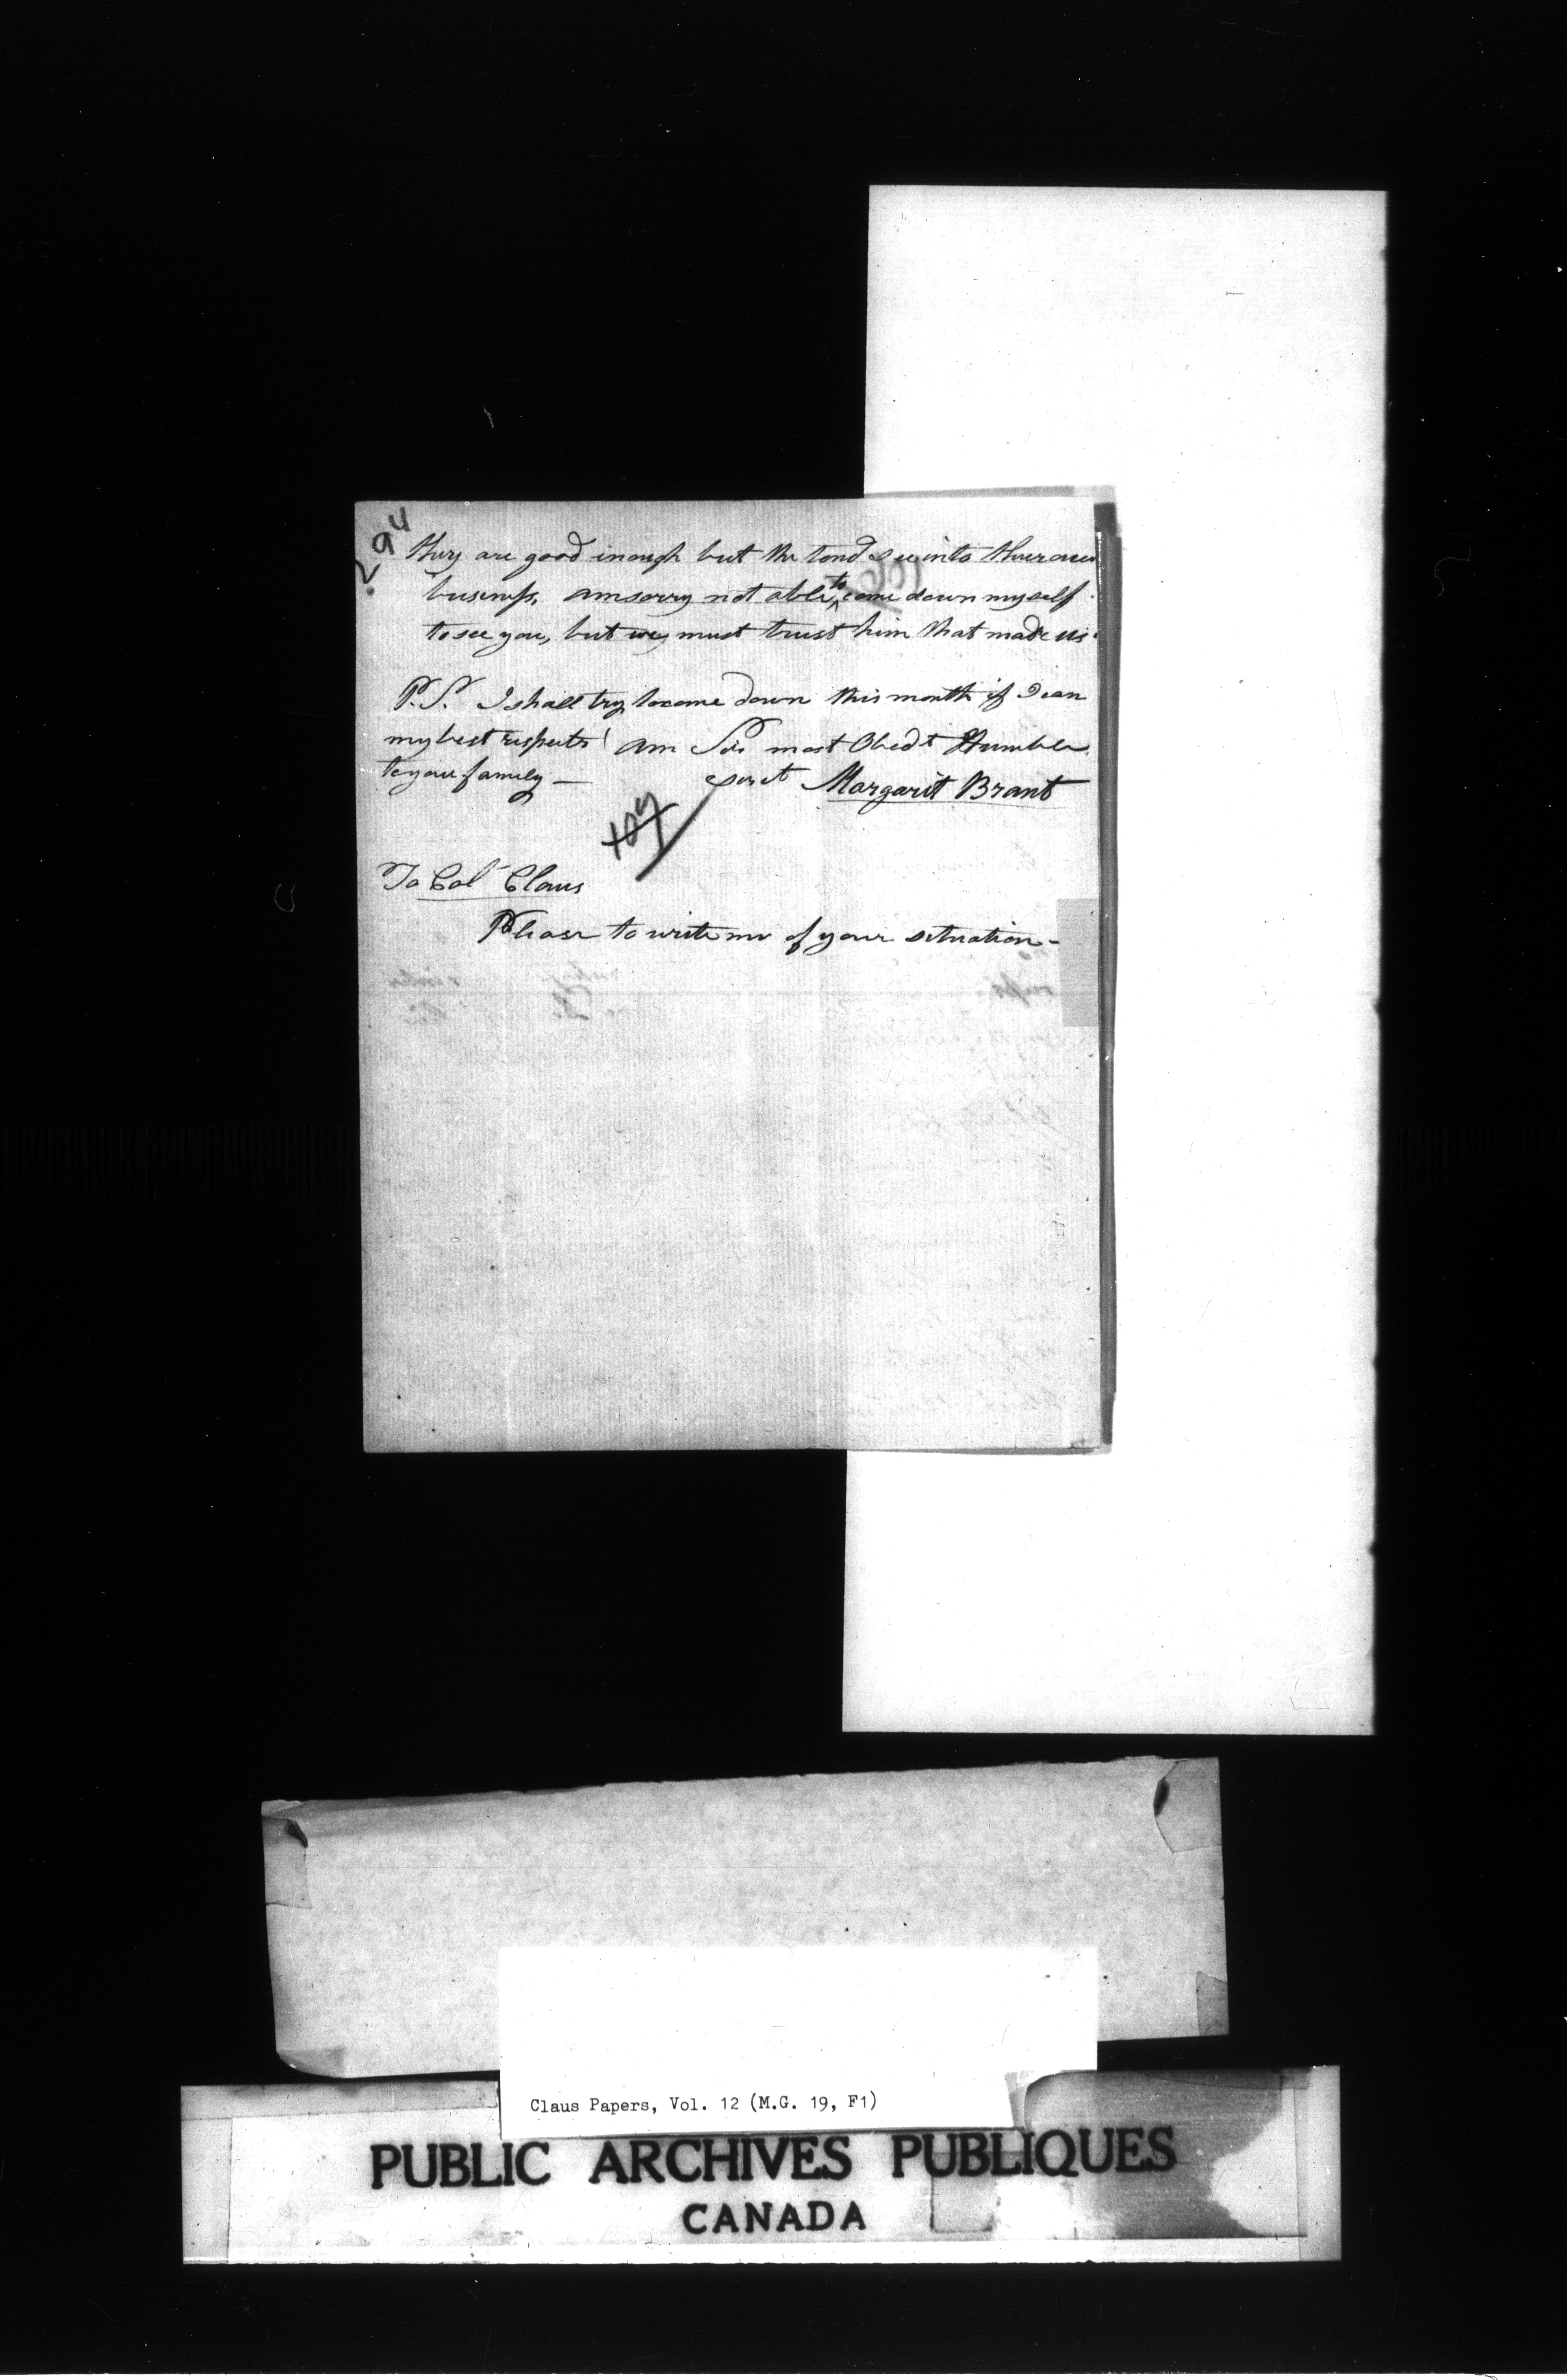 294
they are good inough but the tond see into their own
business, am sorry not able to come down myself
to see you, but we must trust him that made us.
P.S. I shall try to come down this month if I can
my best respects am Sir most Obedt Humble
to your family — Margarit Brant
To Col Claus
Please to write me of your situation -
Claus Papers, Vol. 12 (M.G. 19, F1)
PUBLIC ARCHIVES PUBLIQUES
CANADA